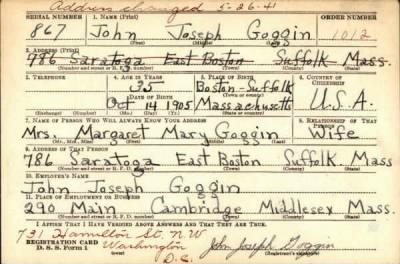 Address changed 5-26-41
SERIAL NUMBER 1. NAME (Print) ORDER NUMBER
867 John Joseph Goggin 1012
(First) (Middle) (Last)
2. ADDRESS (Print)
986 Saratoga East Boston Suffolk Mass.
(Number and street or R. F. D. number) (Town) (County) (State)
3. TELEPHONE 4. AGE IN YEARS 5. PLACE OF BIRTH 6. COUNTRY OF CITIZENSHIP
35 Boston-Suffolk
DATE OF BIRTH (Town or county)
Oct 14 1905 Massachusetts U.S.A.
(Exchange) (Number) (Mo.) (Day) (Yr.) (State or country)
7. NAME OF PERSON WHO WILL ALWAYS KNOW YOUR ADDRESS 8. RELATIONSHIP OF THAT PERSON
Mrs. Margaret Mary Goggin Wife
(Mr., Mrs., Miss) (First) (Middle) (Last)
9. ADDRESS OF THAT PERSON
786 Saratoga East Boston Suffolk Mass
(Number and street or R. F. D. number) (Town) (County) (State)
10. EMPLOYER'S NAME
John Joseph Goggin
11. PLACE OF EMPLOYMENT OR BUSINESS
290 Main Cambridge Middlesex Mass.
(Number and street or R. F. D. number) (Town) (County) (State)
I AFFIRM THAT I HAVE VERIFIED ABOVE ANSWERS AND THAT THEY ARE TRUE.
731 Hamilton St. N.W
REGISTRATION CARD Washington John Joseph Goggin
D. S. S. Form 1 D.C. (Registrant's signature)